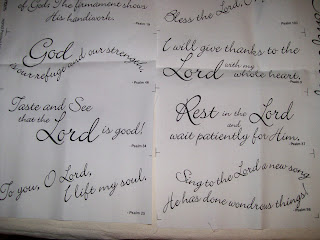 of God; The firmament shows
His handiwork.
Psalm 19
God and our strength,
is our refuge
Psalm 46
Taste and See
that the
Lord is good!
Psalm 34
To you, O Lord,
I lift my soul.
Psalm 25
Bless the Lord, O
Psalm 103
I will give thanks to the
Lord with my
whole heart.
Psalm 9
Rest in the Lord
and
wait patiently for Him.
Psalm 37
Sing to the Lord a new song
He has done wondrous things!